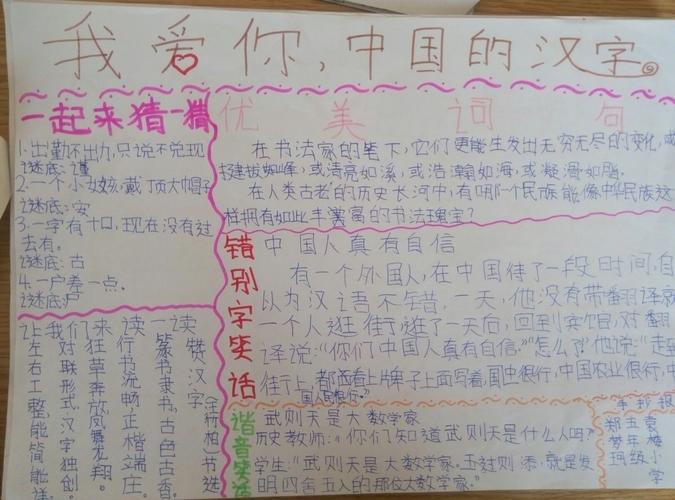 我爱你,中国的汉字
一起来猜一猜
1.出勤不出力,只说不兑现
谜底:谨
2.一个小女孩,戴顶大帽子
谜底:安
3.一字有十口,现在没有过
去有。
谜底:古
4.一户差一点.
谜底尸
优美词句
在书法家的笔下,它们更能生发出无穷无尽的变化,或
挺拔如峰,或清亮如溪,或浩瀚如海,或凝滑如脂.
在人类古老的历史长河中,有哪个民族能像中华民族这
样拥有如此丰富的书法瑰宝?
错别字笑话
中国人真有自信
有一个外国人,在中国待了一段时间,自
以为汉语不错,一天,他没有带翻译就
一个人逛街,逛了一天后,回到宾馆,对翻
译说:“你们中国人真有自信.”怎么了?他说:“走到
街上,都看上牌子上面写着,中国很行,中国农业很行,中
国人民很行.”
读一读
赞汉字
(王竹柏)节选
篆书隶书,古色古香。
行书流畅,正楷端庄。
狂草奔放,凤舞龙翔。
来
我们对联形式,汉字独创。
上左右工整,能简能详。
谐音笑话
武则天是大数学家
历史教师:“你们知道武则天是什么人吗?
学生:“武则天是大数学家.五过则添,就是发
明四舍五入的那位大数学家.
手抄报